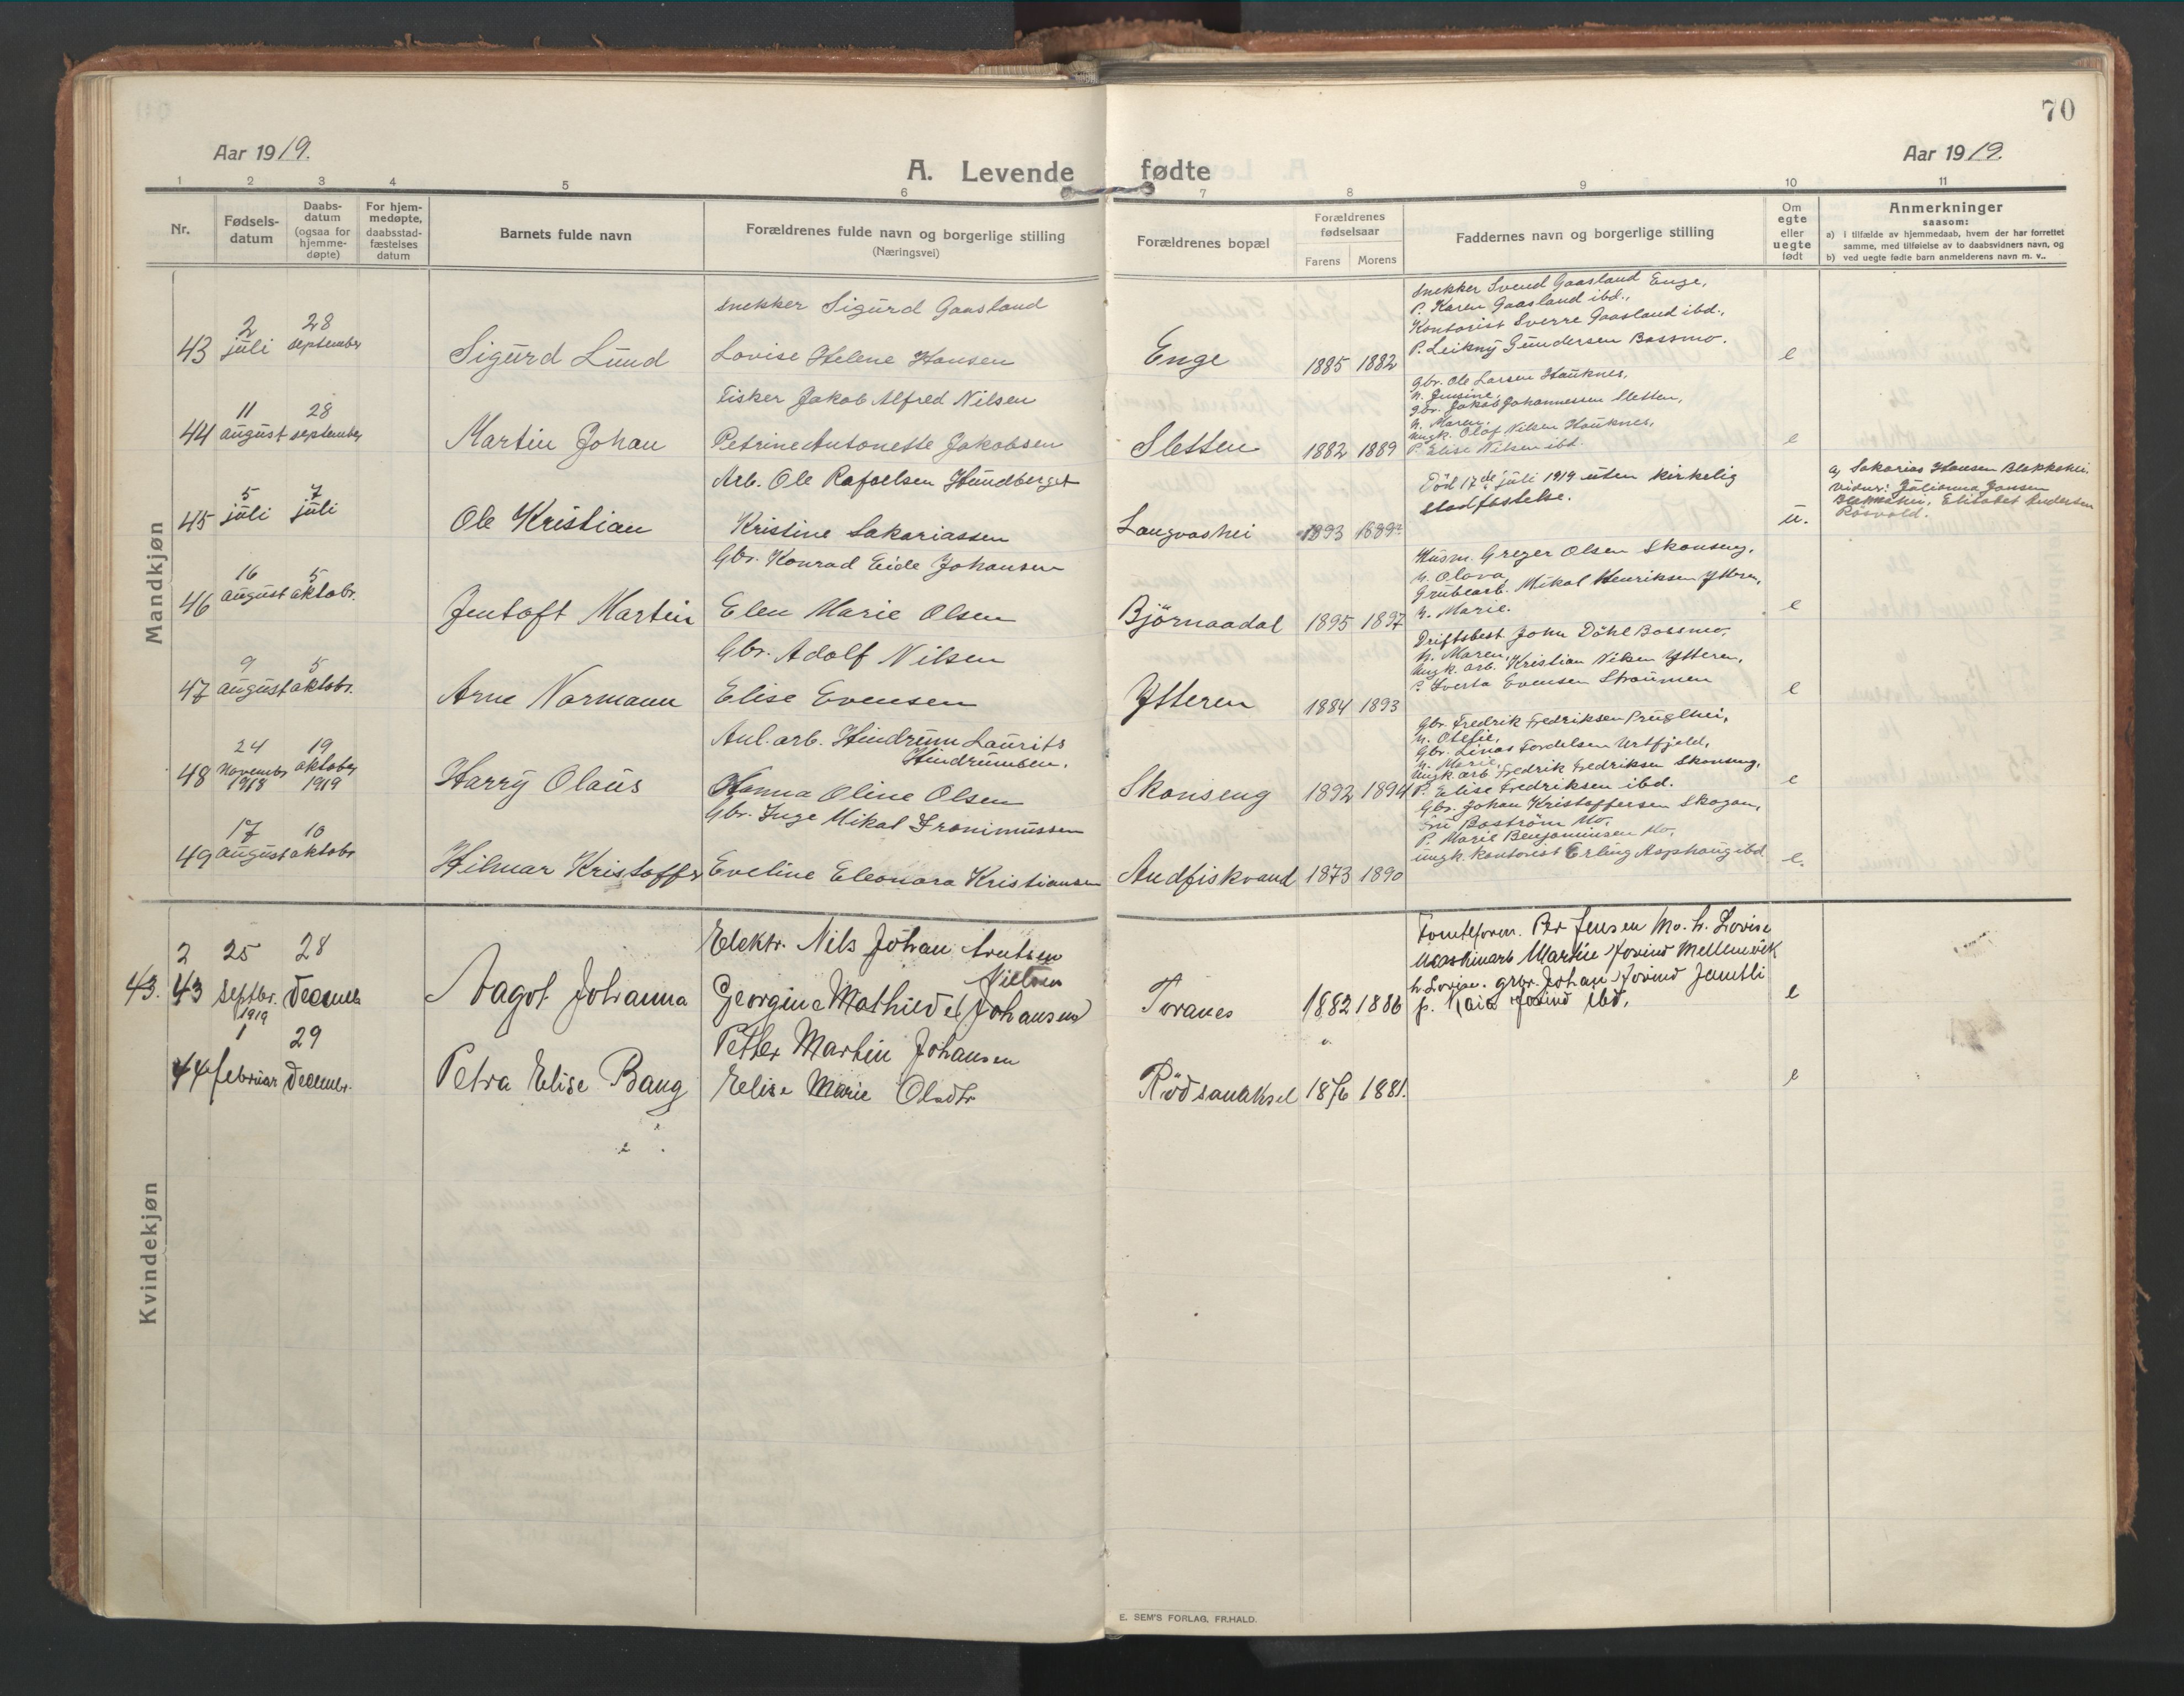 70
Aar 1919.
Aar 1919.
A. Levende fødte
1 2 3 4 5 6 7 8 9 10 11
Nr.
Fødsels-
datum
Daabs-
datum
(ogsaa for
hjemme-
døpte)
For hjem-
medøpte,
daabsstad-
fæstelses
datum
Barnets fulde navn
Forældrenes fulde navn og borgerlige stilling
(Næringsvei)
Forældrenes bopæl
Forældrenes
fødselsaar
Farens Morens
Faddernes navn og borgerlige stilling
Om
egte
eller
uegte
født
Anmerkninger
saasom:
a) i tilfælde av hjemmedaab, hvem der har forrettet
samme, med tilføielse av to daabsvidners navn, og
b) ved uegte fødte barn anmelderens navn m. v..
Mandkjøn
43
2
juli
28
september
Sigurd Lund
Snekker Sigurd Gaasland
Lovise Helene Hansen
Enge
1885 1882
Snekker Svend Gaasland Enge,
P. Karen Gaasland ibd.,
Kontorist Sverre Gaasland ibd.,
P. Leikny Gundersen Bossmo.
e
44
11
august
28
september
Martin Johan
Fisker Jakob Alfred Nilsen
Petrine Antonette Jakobsen
Sletten
1882 1889
Gbr. Ole Larsen Hauknes,
h. Jensine,
Gbr. Jakob Johannessen Sletten,
h. Maren,
Ungk. Olaf Nilsen Hauknes,
P. Elise Nilsen ibd.
e
45
5
juli
7
juli
Ole Kristian
Arb. Ole Rafaelsen Hundberget
Kristine Sakariassen
Langvashei
1893 1889
Död 17de juli 1919 uten kirkelig
stadfestelse.
u.
a, Sakarias Hansen
Vidner: Julianna Jansen
Elisabet Andersen
Rösvold.
46
16
august
5
oktobr.
Jentoft Martin
Gbr. Konrad Eide Johansen
Elen Marie Olsen
Björnaadal
1895 1897
Husm. Greger Olsen Skonseng,
h. Olava,
Grubearb. Mikal Henriksen Ytteren,
h. Marie.
e
47
9
august
5
oktobr.
Arne Normann
Gbr. Adolf Nilsen
Elise Evensen
Ytteren
1884 1893
Driftsbest. John Döhl Bossmo,
h. Maren,
Ungk. arb. Kristian Nilsen Ytteren,
P. Sverta Evensen Straumen
e
48
24
Novembr
1918
19
oktober
1919
Harry Olaus
Anl. arb. Hindrum Laurits
Hindrumsen.
Hanna Oline Olsen
Skonseng
1892 1894
Gbr. Fredrik Fredriksen Pruglhei,
h. Otelie,
Gbr. Linas Tordelsen Urtfjeld,
h. Marie,
Ungk. arb Fredrik Fredriksen Skonseng,
P. Elise Fredriksen ibd.
e
49
17
august
10
oktobr
Hilmar Kristoffer
Gbr. Inge Mikal Fronimussen
Eveline Eleonora Kristiansen
Andfiskvand
1873 1890
Gbr. Johan Kristoffersen Skogan,
Fru Boström Mo,
P. Marie Benjaminsen Mo,
ungk. kontorist Erling Asphaug ibd
e.
Kvindekjøn
2
43. 43
25
septbr.
1919
28
Decemb
Aagot Johanna
Elektr. Nils Johan Arntsen
Georgine Mathilde Johansen
Toranes
1882 1886
Tomteform. Per Jensen Mo. h. Lovise
Maskinarb Martin Josind Mellemvik
h. Lovise. grbr. Johan Josind Jamtli
p. Kaia Josind ibd.
e
44
1
februar
29
Decembr.
Petra Elise Bang
Petter Martin Johansen
Elise Marie Olsdtr
Rödsanaksel
1876 1881.
e
E. SEM'S FORLAG, FR.HALD.